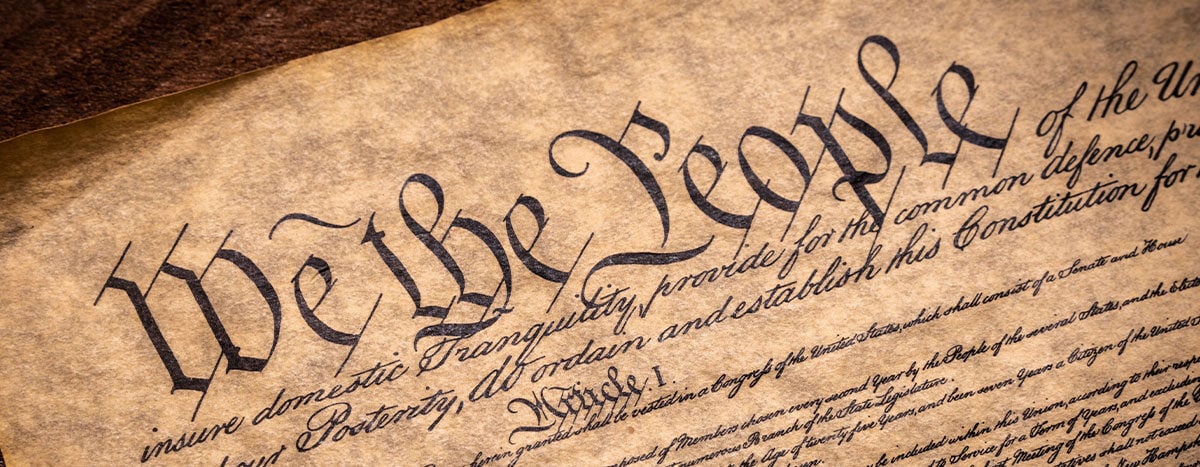 We the People of the Un
insure domestic Tranquility, provide for the common defence, pr
our Posterity, do ordain and establish this Constitution for
Article I.
herein granted shall be vested in a Congress of the United States, which shall consist of a Senate and Hous
posed of Members chosen every second Year by the People of the several States, and the Elect
numerous Branch of the State Legislature.
the Age of twenty five Years, and been seven Years a Citizen of the United
be included within this Union, according to their respe
to Service for a Term of Years, and excludin
Meeting of the Congress of the
tatives shall not exceed
New Hamp